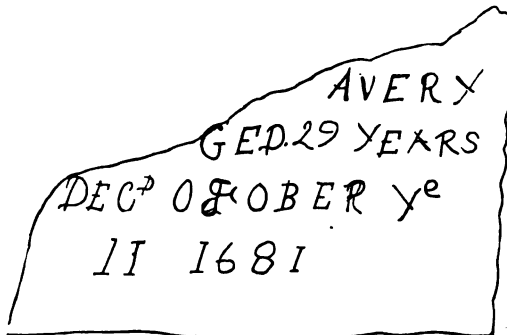 AVERY
GED.29 YEARS
DECD OCTOBER Ye
11 1681